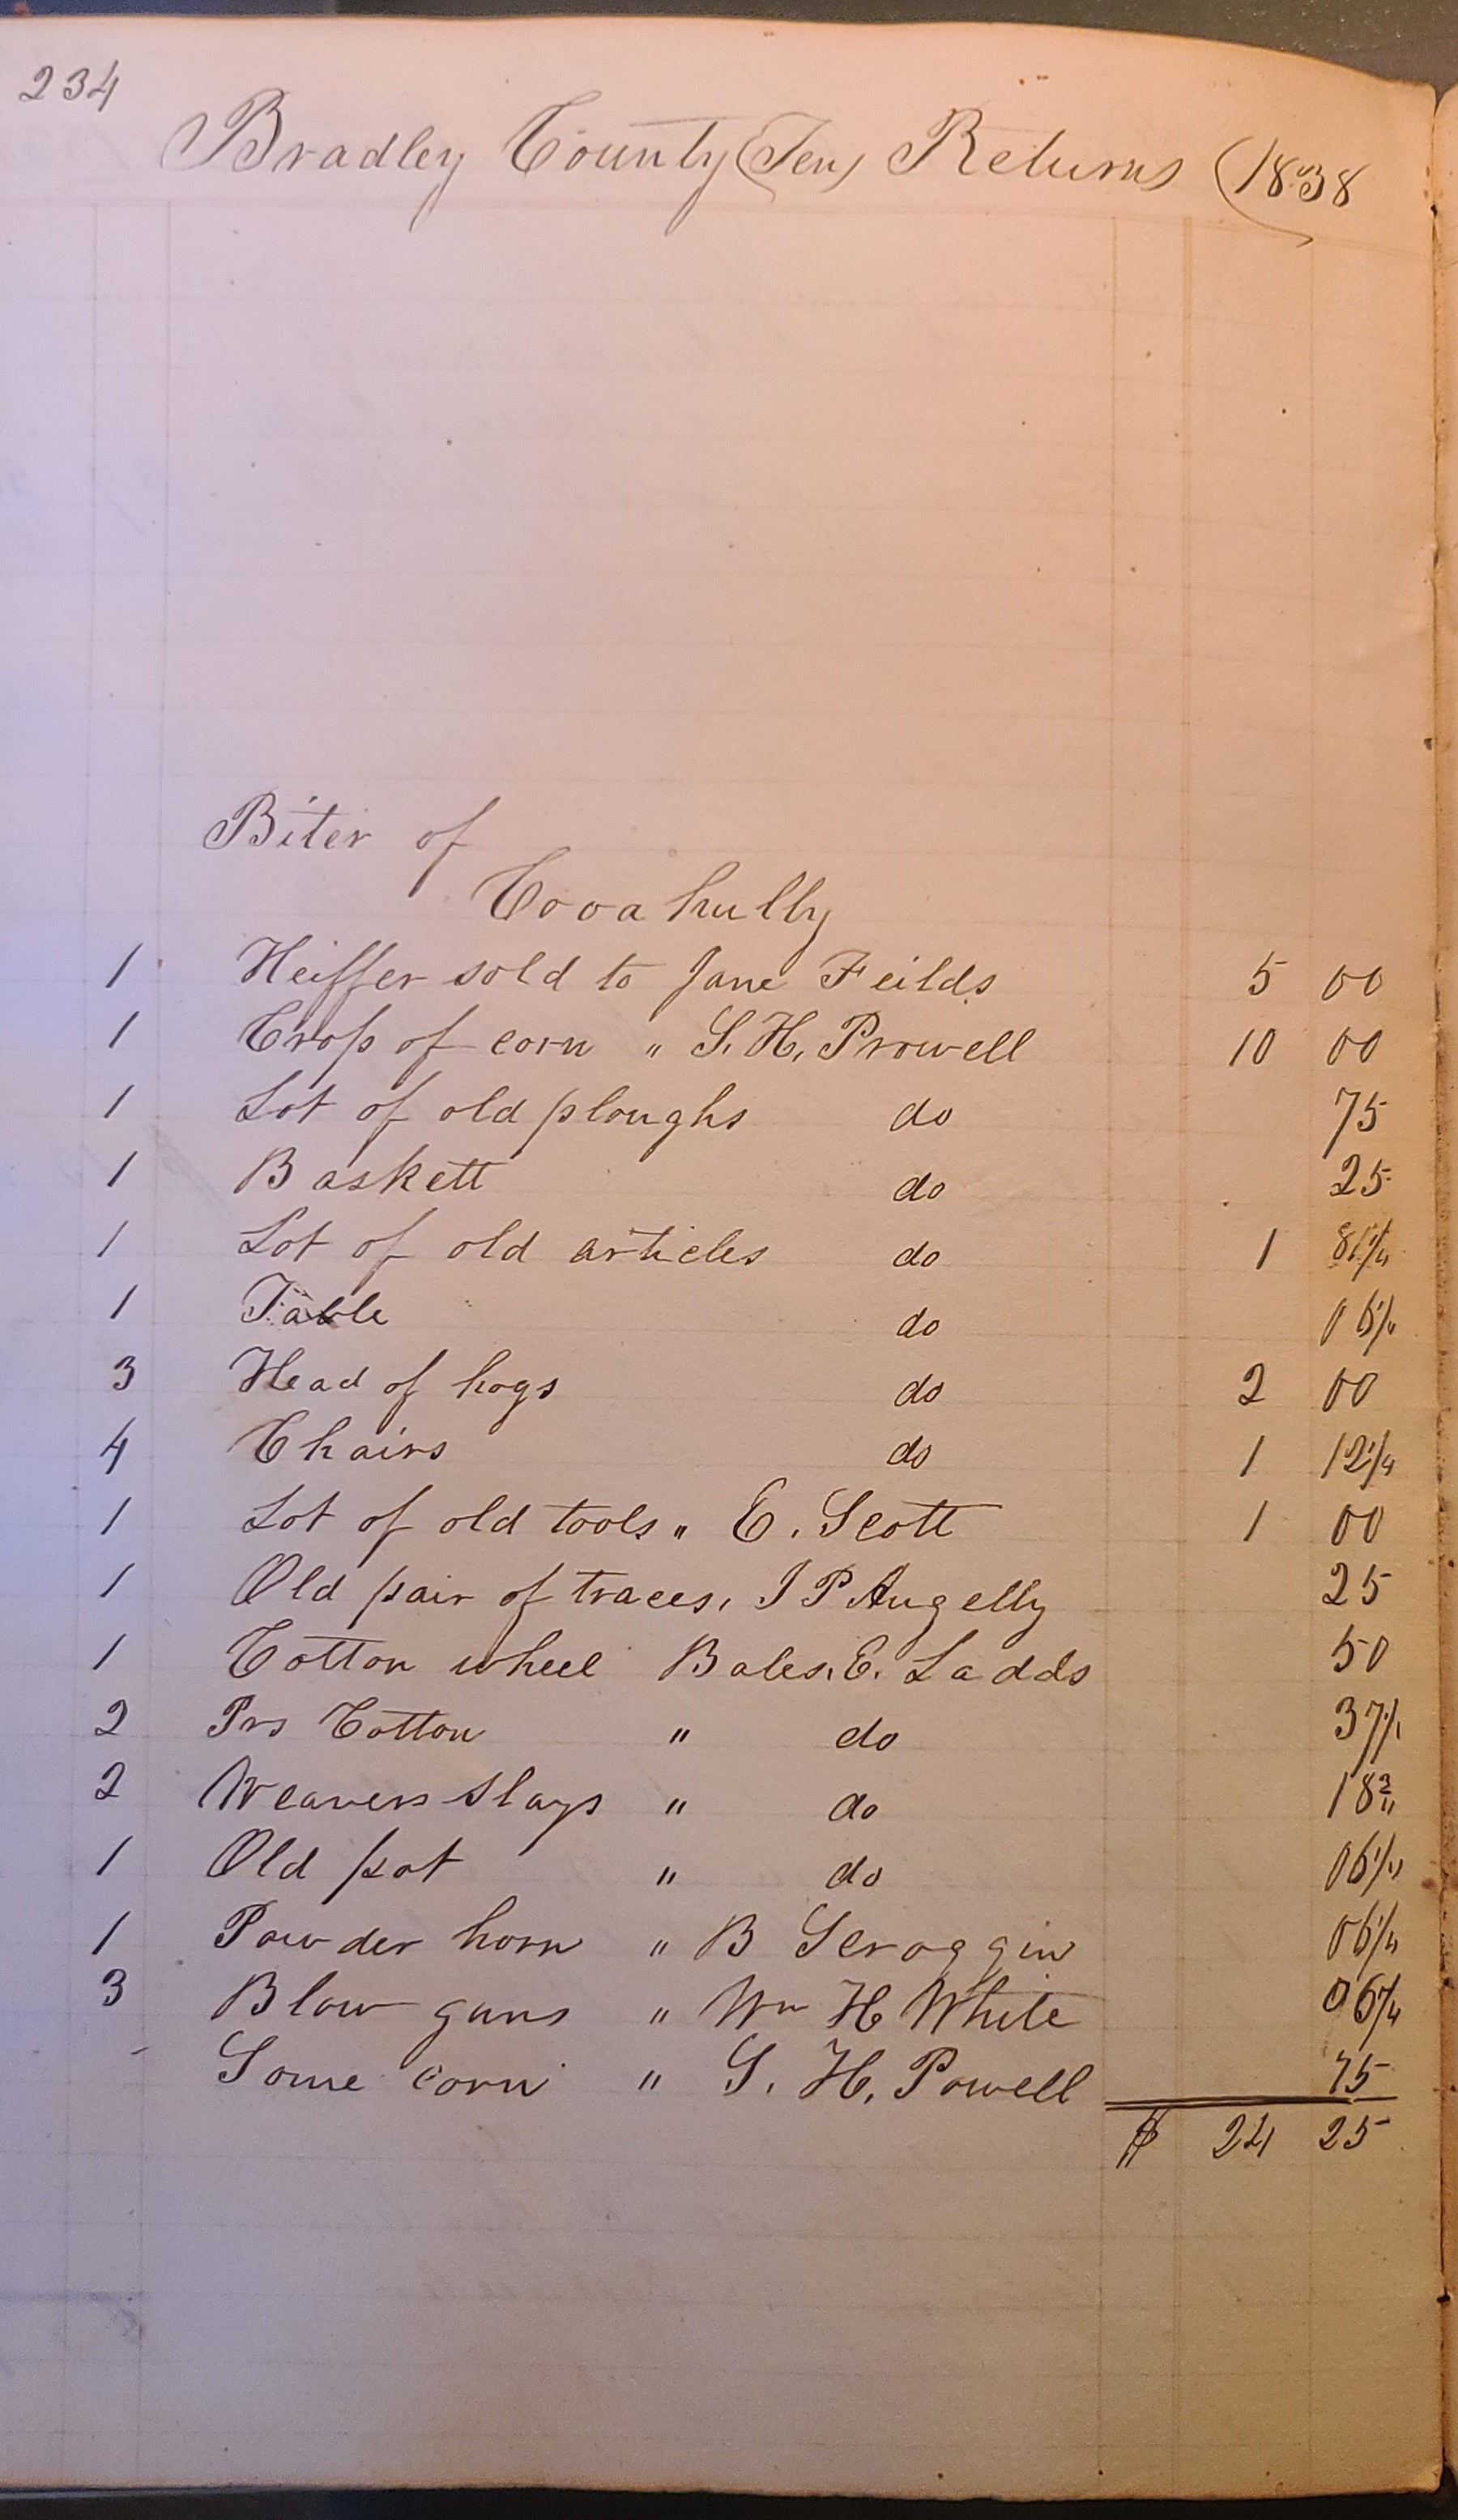 234
Bradley County (Ten) Returns (1838
Biter of
Cooahully
1 Heiffer sold to Jane Feilds 5 00
1 Crop of corn " S. H. Prowell 10 00
1 Lot of old ploughs do 75
1 Baskett do 25
1 Lot of old articles do 1 81 1/4
1 Table do 06 1/4
3 Head of hogs do 2 00
4 Chairs do 1 12 1/4
1 Lot of old tools " E. Scott 1 00
1 Old pair of traces, J P Augelly 25
1 Cotton wheel Bales. E. Ladds 50
2 Prs Cotton " do 37 1/2
2 Weavers Slays " do 18 3/4
1 Old pot " do 06 1/4
1 Powder horn " B Scroggin 06 1/4
3 Blow guns " Wm H White 06 1/4
Some corn " S. H. Powell 75
$ 24 25